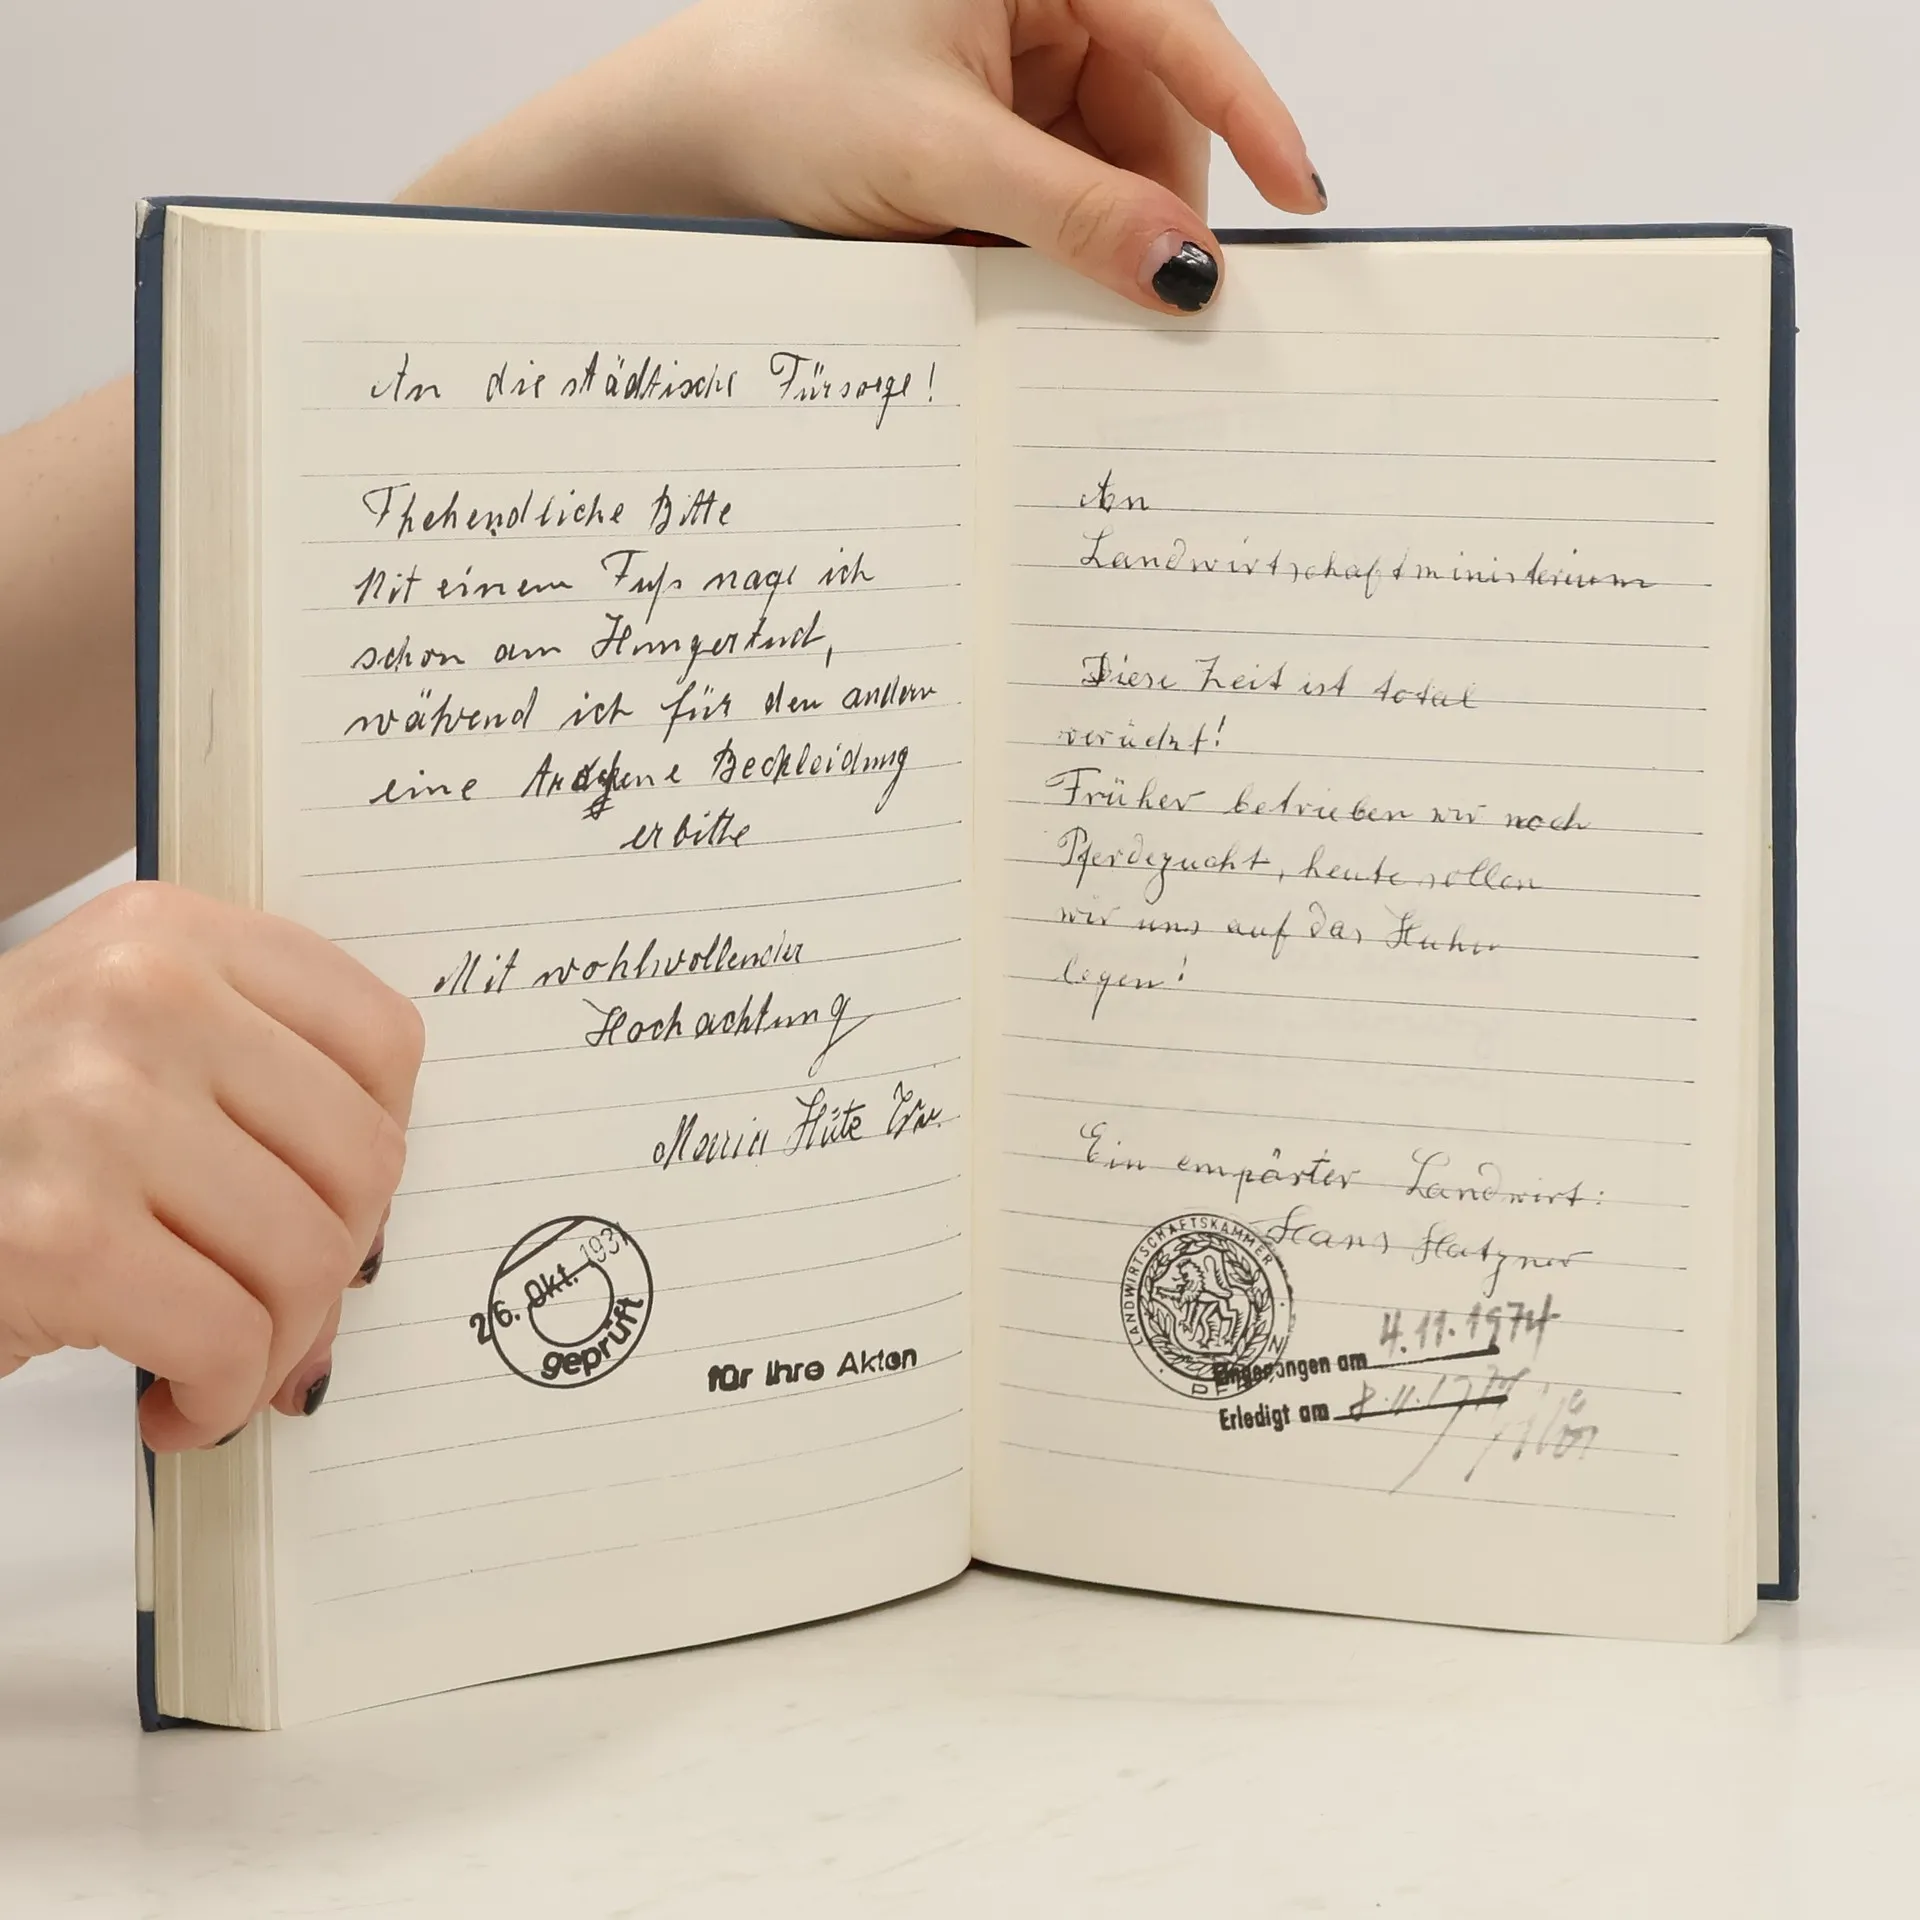 An die städtische Fürsorge!
Flehendliche Bitte
Mit einem Fuß nage ich
schon am Hungertuch,
während ich für den andern
eine Beckleidung
erbitte
Mit wohlwollender
Hochachtung
Maria Hüte Ww.
26. Okt. 1931
geprüft
für Ihre Akten
An
Landwirtschaftministerium
Diese Zeit ist total
verückt!
Früher betrieben wir noch
Pferdezucht, heute sollen
wir uns auf das Huhn
legen!
Ein empörter Landwirt:
Hans Hatzner
LANDWIRTSCHAFTSKAMMER
4.11.1974
Eingegangen am
Erledigt am 8.11.1974